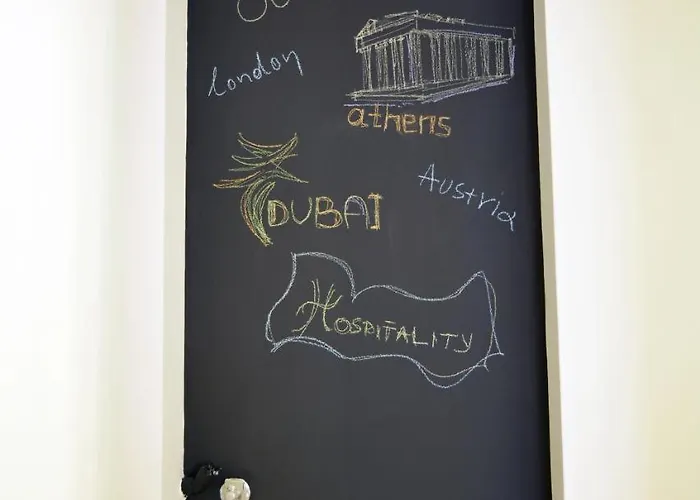 london
athens
DUBAI
Austria
HOSPITALITY